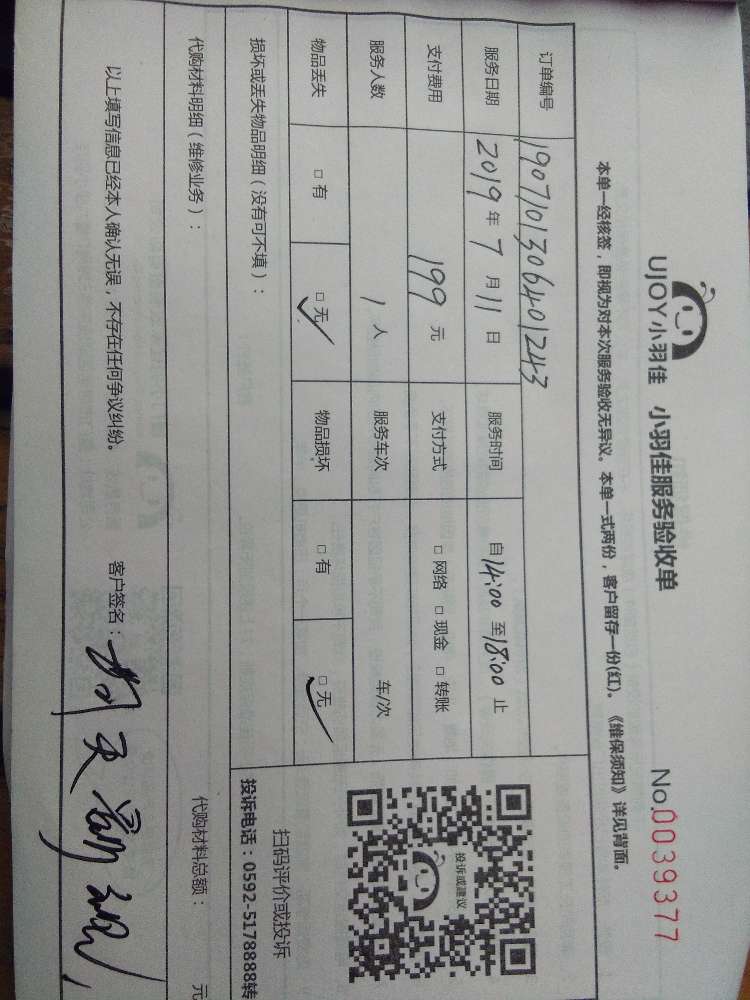 UJOY小羽佳 小羽佳服务验收单 No.0039377
本单一经核签，即视为对本次服务验收无异议。本单一式两份，客户留存一份(红)。《维保须知》详见背面。
订单编号 1907101306401243
服务日期 2019年7月11日 服务时间 自14:00至18:00止
支付费用 199元 支付方式 □网络 □现金 □转账
服务人数 1人 服务车次 车/次
物品丢失 □有 □无 物品损坏 □有 □无
投诉或建议
扫码评价或投诉
损坏或丢失物品明细（没有可不填）：
投诉电话：0592-5178888转
代购材料明细（维修业务）： 代购材料总额： 元
以上填写信息已经本人确认无误，不存在任何争议纠纷。 客户签名：